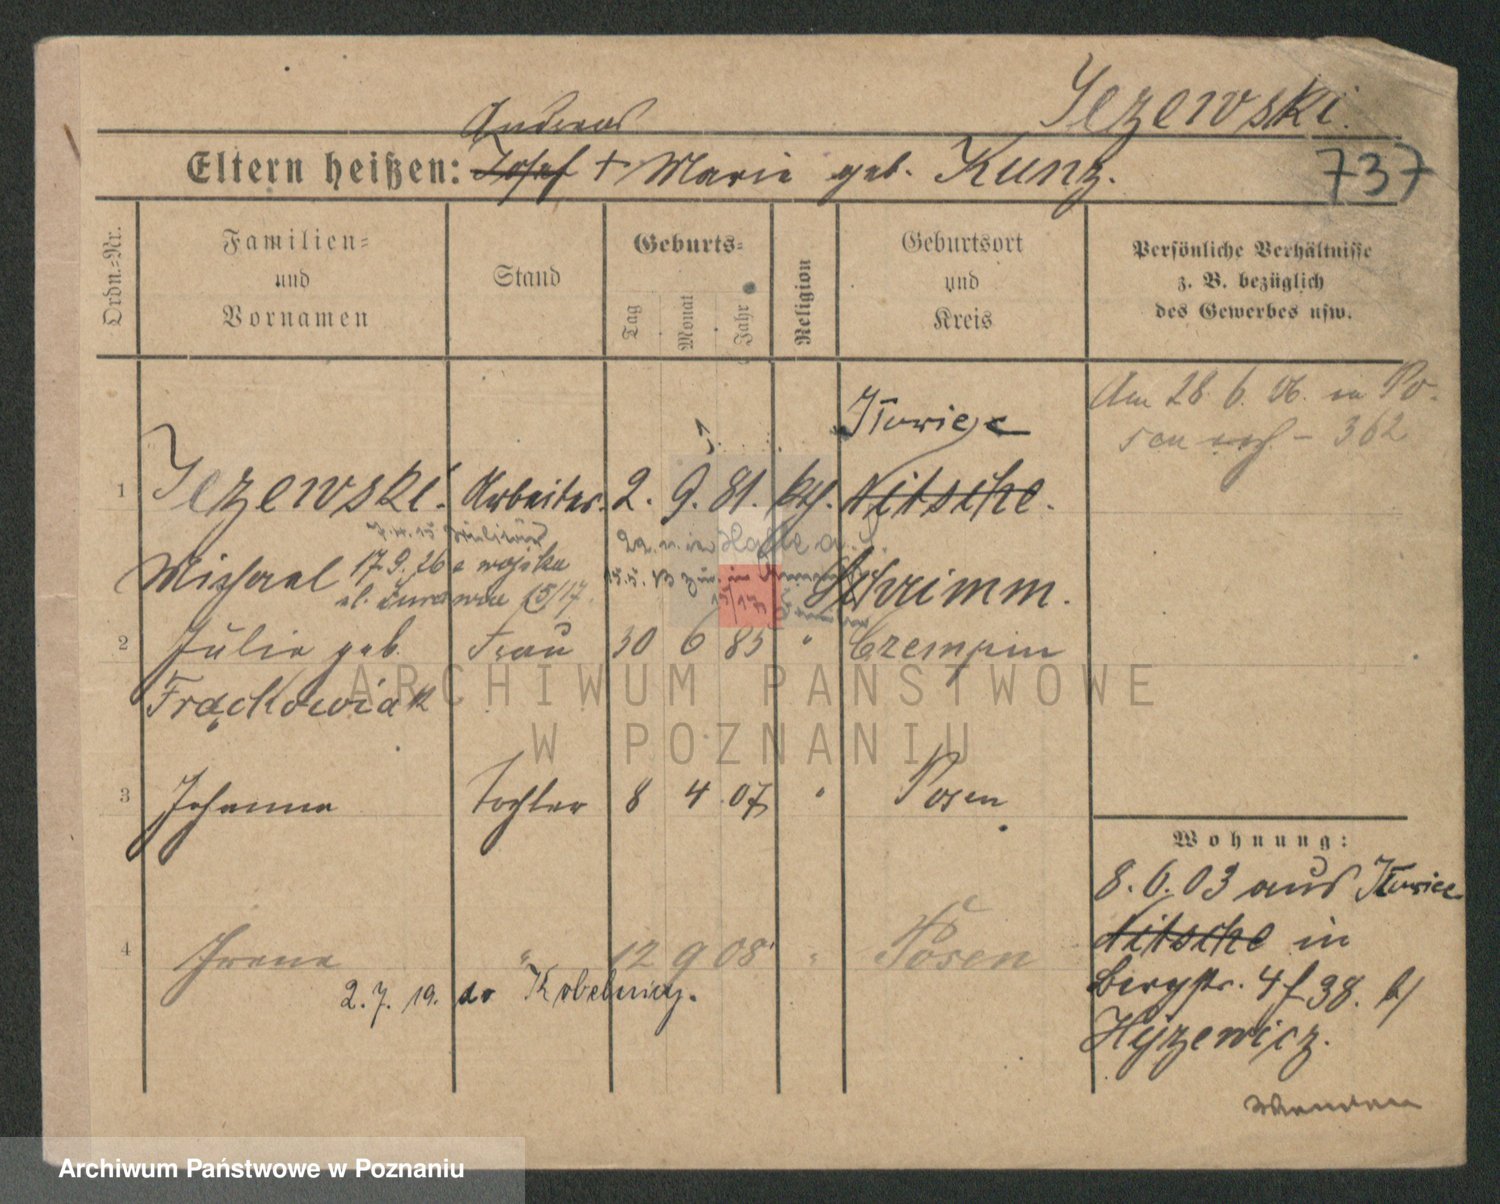 Jezewski.
Andreas
Eltern heißen: Josef + Marie geb. Kunz.
737
Ordn.-Nr.
Familien-
und
Vornamen
Stand
Geburts-
Tag
Monat
Jahr
Religion
Geburtsort
und
Kreis
Persönliche Verhältnisse
z. B. bezüglich
des Gewerbes usw.
Am 28. 6. 06. in Po-
sen – 362
1
Jezewski. Arbeiter. 2. 9. 81. kth. Nitsche.
Michael
17.9.26 z wojska
15/17
Schrimm.
2 Julie geb. Frau 30 6 85 " Czempin
Frąckowiak
ARCHIWUM PAŃSTWOWE
W POZNANIU
3 Johanna Tochter 8 4 07 " Posen
4 Irena " 12 9 08 " Posen
2. 7. 19. do
Wohnung:
8. 6. 03 aus
Nitsche in
Bergstr. 4 f 38. b/
Hyzewicz.
Wenden
Archiwum Państwowe w Poznaniu